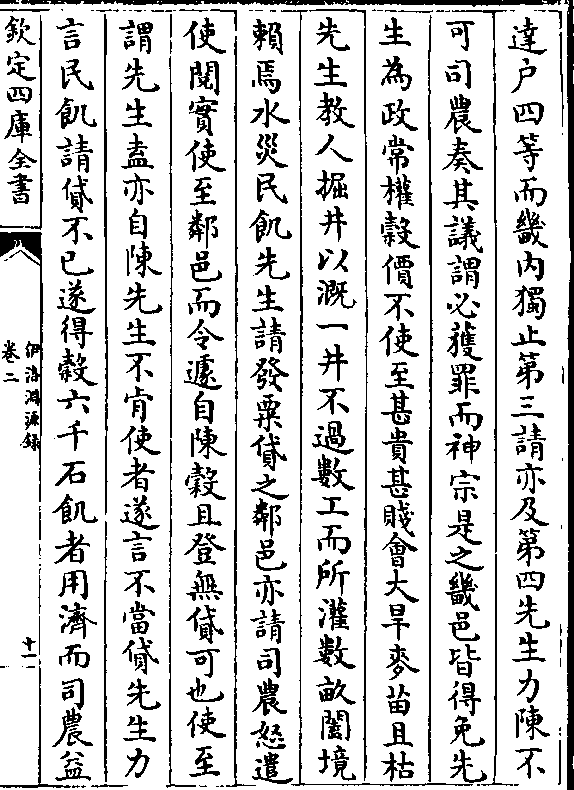 達户四等而畿内獨止第三請亦及第四先生力陳不
可司農奏其議謂必獲罪而神宗是之畿邑皆得免先
生為政常權穀價不使至甚貴甚賤會大旱麥苗且枯
先生教人掘井以溉一井不過數工而所灌數畝闔境
賴焉水災民飢先生請發粟貸之鄰邑亦請司農怒遣
使閱實使至鄰邑而令遽自陳穀且登無貸可也使至
謂先生盍亦自陳先生不肯使者遂言不當貸先生力
言民飢請貸不已遂得穀六千石飢者用濟而司農益
欽定四庫全書
伊洛淵源錄
卷二
十一